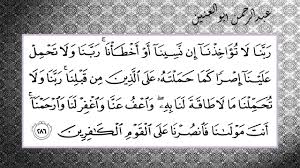 عبدالرحمن ابو العينين
رَبَّنَا لَا تُؤَاخِذْنَا إِن نَّسِينَا أَوْ أَخْطَأْنَا ۚ رَبَّنَا وَلَا تَحْمِلْ
عَلَيْنَا إِصْرًا كَمَا حَمَلْتَهُ عَلَى الَّذِينَ مِن قَبْلِنَا ۚ رَبَّنَا وَلَا
تُحَمِّلْنَا مَا لَا طَاقَةَ لَنَا بِهِ ۖ وَاعْفُ عَنَّا وَاغْفِرْ لَنَا وَارْحَمْنَا ۚ
أَنتَ مَوْلَانَا فَانصُرْنَا عَلَى الْقَوْمِ الْكَافِرِينَ ٢٨٦